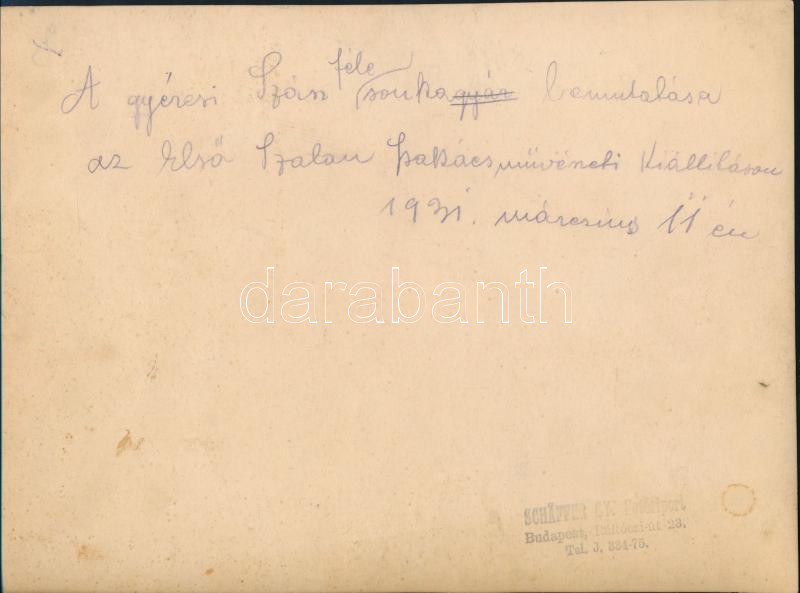 A gyéresi Szász féle sonka gyár bemutatása
az Első Szalon szakácsművészeti kiállításon
1931. március 11 én
darabanth
SCHÄFFER GY. Fotóriport
Budapest, Rákóczi-út 23.
Tel. J. 334-75.